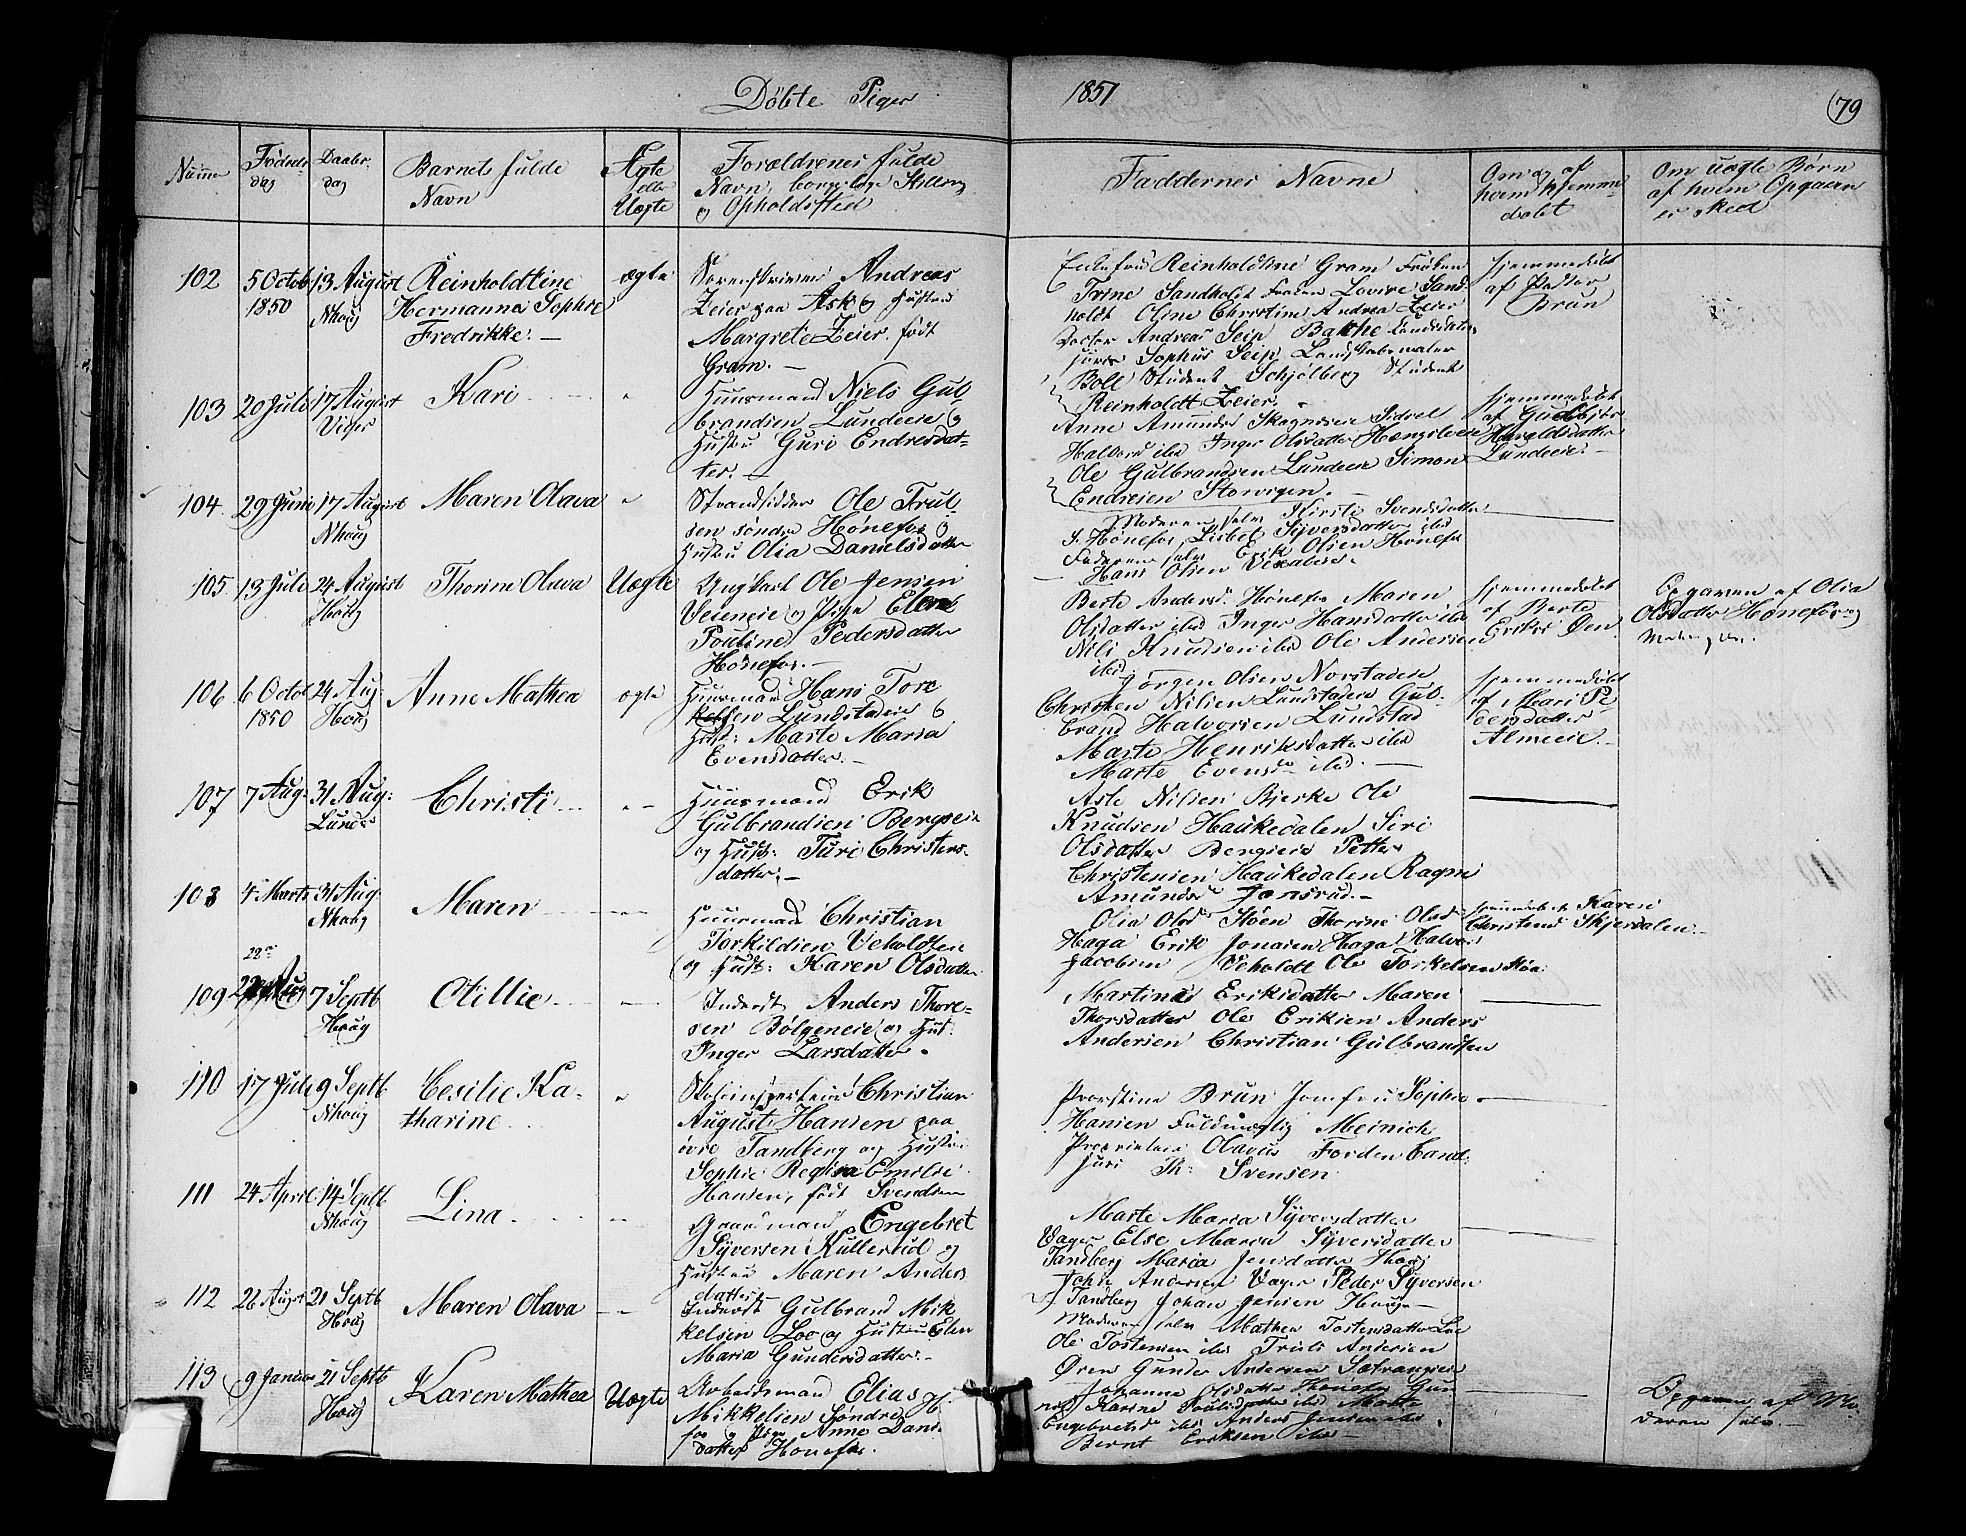 Döbte Piger
1851
79
Numer
Fødsels-
dag
Daabs-
dag
Barnets fulde
Navn
Ægte
eller
Uægte
Forældrenes fulde
Navn, borgelige Stilling
og Opholdssted
Faddernes Navne
Om og af
hvem hjemme-
døbt
Om uægte Børn
af hvem Opgaven
er skeed
102
5 Octob
1850
13 August
Nhoug
Reinholdtine
Hermanna Sophie
Fredrikke. —
ægte
Sorenskriver Andreas
Zeier paa Ask og Hustru
Margrete Zeier, født
Gram. —
Enkefru Reinholdtine Gram Frøken
Trine Sandholdt Frøken Lovise Sand-
holdt Oline Christine Andrea Zeier
Doctor Andreas Seip Bakke
Sophus Seip
Boll Student Schjölberg Student
Reinholdt Zeier. —
Hjemmedøbt
af Pastor
Brun
103
20 Juli
17 August
Viger
Kari
Huusmand Niels Gul
brandsen Lundeeie og
Hustru Guri Endresdat-
ter. —
Anne Amunds Skognseie Sidsel
Halvors ibd Inger Olsdatter Hængsleeie
Ole Gulbrandsen Lundeeie Simon
Endresen Storvigen. —
Hjemmedøbt
af Gudbjør
Haraldsdatter
Lundeeie. —
104
29 Juni
17 August
Nhoug
Maren Olava
Strandsidder Ole Trul
sen søndre Hönefos og
Hustru Olia Danielsdatter
Moderen selv Kirsti Svendsdatter
S. Hönefos, Lisbet Syversdatter ibd
Faderen selv Erik Olsen Hönefos
Hans Olsen
105
13 Juli
24 August
Houg
Thorine Olava
Uægte
Ungkarl Ole Jensen
Veieneie og Pige Elen
Pouline Pedersdatter
Hönefos. —
Berte Andersd. Hönefos Maren
Olsdatter ibd Inger Hansdatter ibd
Nils Knudsen ibd Ole Andersen
ibd
Hjemmedøbt
af Berte
Eriks Öen.
Opgaven af Olia
Olsdatter Hönefos og
106
6 Octob
1850
24 Aug:
Houg
Anne Mathea
ægte
Huusmand Hans Tore
Lundstadeie og
Hust: Marte Maria
Evensdatter. —
Jörgen Olsen Norstadeie
Christen Nilsen Lundstadeie Gul-
brand Halvorsen Lundstad
Marte Henriksdatter ibd
Marte Evensdr ibd. —
Hjemmedøbt
af Mari Pe
dersdatter
Almeeie. —
107
7 Aug:
31 Aug:
Lunde
Christi
Huusmand Erik
Gulbrandsen Bergseie
og Hust: Turi Christens-
datter. —
Asle Nilsen Bjerke Ole
Knudsen Haukedalen Siri
Olsdatter Bergseie Petter
Christensen Haukedalen Ragne
Amundsdr Jonsrud. —
108
4 Marts
31 Aug
Nhoug
Maren
Huusmand Christian
Torkildsen Veholdten
og Hust: Karen Olsdatter
Olia Olsd Höen Thorine Olsd
Haga Erik Jonasen Haga Halvor
Jacobsen Veholdt Ole Torkelsen Höa:
Karen
Christens Skjerdalen. —
109
28de
7 Septb
Houg
Ollilie
Inderst Anders Thore-
sen Bölgeneie og Hust:
Inger Larsdatter.
Martinus Eriksdatter Maren
Thorsdatter Ole Eriksen Anders
Andersen Christian Gulbrandsen
110
17 Juli
9 Septb
Nhoug
Cesilie Ka-
tharine
Christian
August Hansen paa
övre Tandberg og Hustru
Sophie Regina Emilie
Hansen, født Svendsen
Provstine Brun Jomfru Sophie
Hansen Fuldmægtig Meinich
Proprietair Olavus Forden Cand:
Juri Th: Svensen
111
24 April
14 Septb
Nhoug
Lina
Gaardmand Engebret
Syversen Kullerud og
Hustru Maren Anders
datter
Marte Maria Syversdatter
Vager Else Maria Syversdatter
Tandberg Maria Jensdatter Houg
Andersen Vager Peder Syversen
Tandberg Johan Jensen Houg —
112
26 Augst
21 Septb
Houg
Maren Olava
Inderst Gulbrand Mik
kelsen Loe og Hustru Elen
Maria Gundersdatter. —
Moderen selv Mathea Tostensdatter Loe
Ole Tostensen ibd Trisli Andersen
Ören Gunder Andersen
113
9 Januar
21 Septb
Houg
Karen Mathea
Uægte
Arbeidsmand Elias
Mikkelsen Söndre H.
fos og Pige Anne Dani
datter Honefos.
Johanne Olsdatter Honefos Gun
Karine Poulsdatter ibd Marte
Engebretsd ibd Anders Jensen ibd
Bernt Eriksen ibd
Opgaven af Mo-
deren selv. —